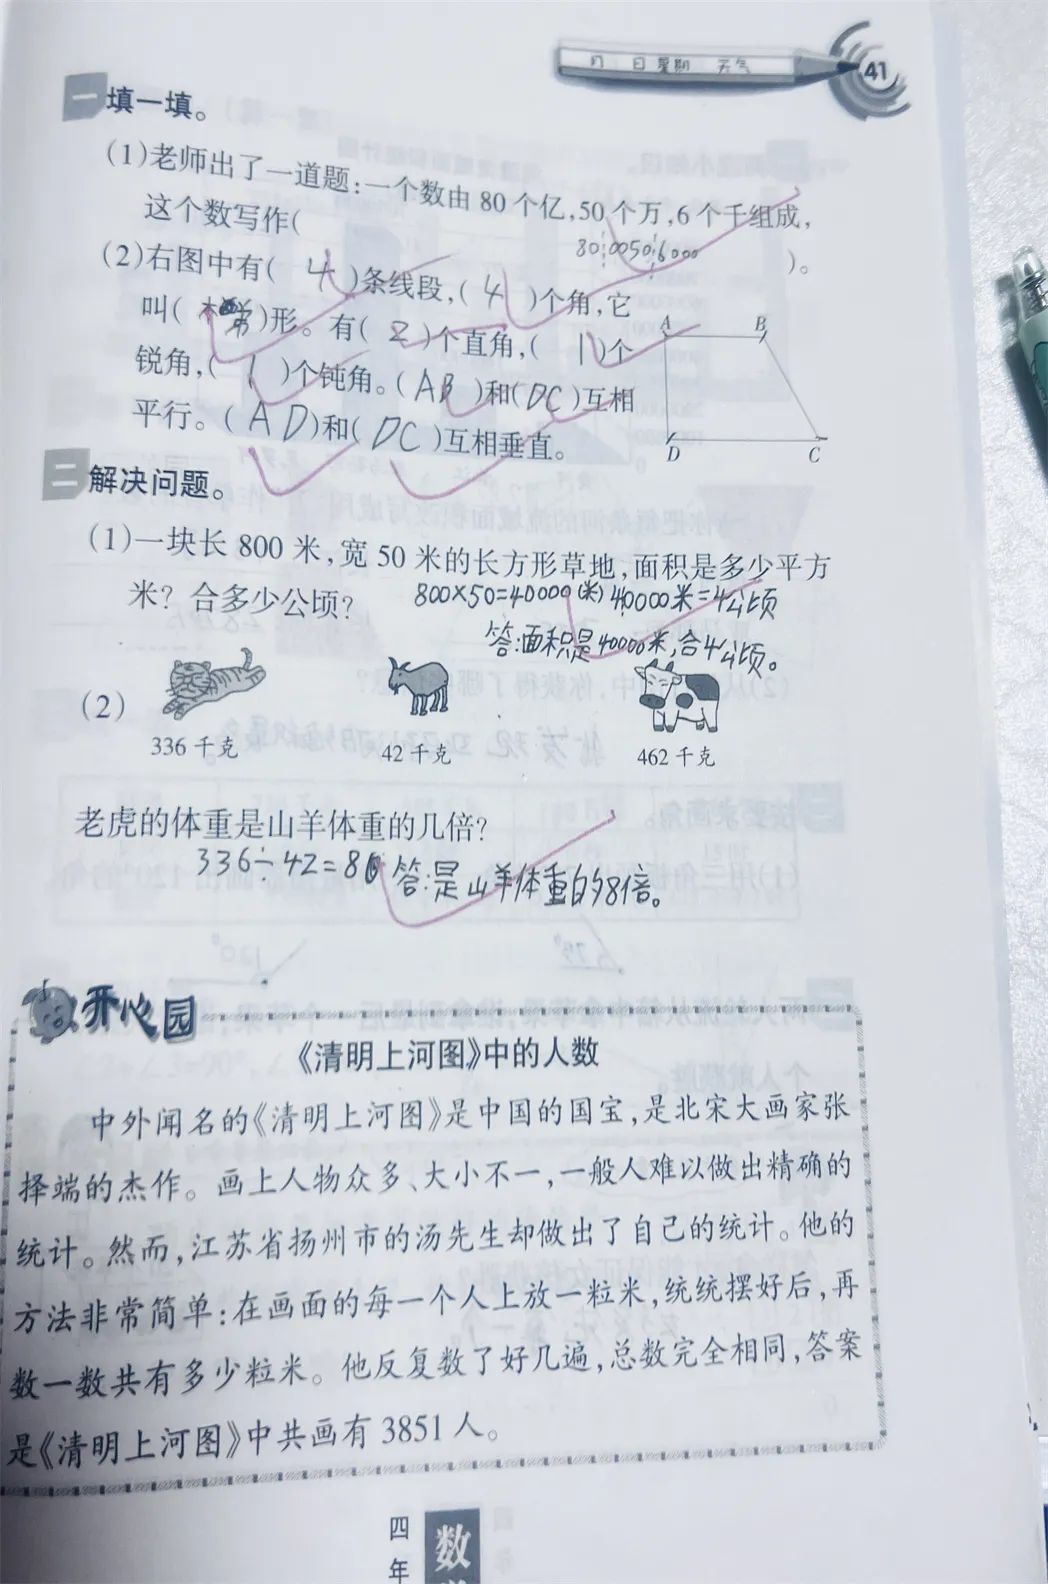 月 日 星期 天气
41
一 填一填。
(1)老师出了一道题:一个数由80个亿,50个万,6个千组成,
这个数写作( 8000506000 )。
(2)右图中有( 4 )条线段,( 4 )个角,它
叫( 梯 )形。有( 2 )个直角,( 1 )个
锐角,( 1 )个钝角。( AB )和( DC )互相
平行。( AD )和( DC )互相垂直。
A B
D C
二 解决问题。
(1)一块长 800 米,宽 50 米的长方形草地,面积是多少平方
米? 合多少公顷?
800×50=40000(米) 40000米=4公顷
答:面积是40000米,合4公顷。
(2)
336 千克 42 千克 462 千克
老虎的体重是山羊体重的几倍?
336÷42=8 答:是山羊体重的8倍。
开心园
《清明上河图》中的人数
中外闻名的《清明上河图》是中国的国宝,是北宋大画家张
择端的杰作。画上人物众多、大小不一,一般人难以做出精确的
统计。然而,江苏省扬州市的汤先生却做出了自己的统计。他的
方法非常简单:在画面的每一个人上放一粒米,统统摆好后,再
数一数共有多少粒米。他反复数了好几遍,总数完全相同,答案
是《清明上河图》中共画有 3851 人。
四年
数